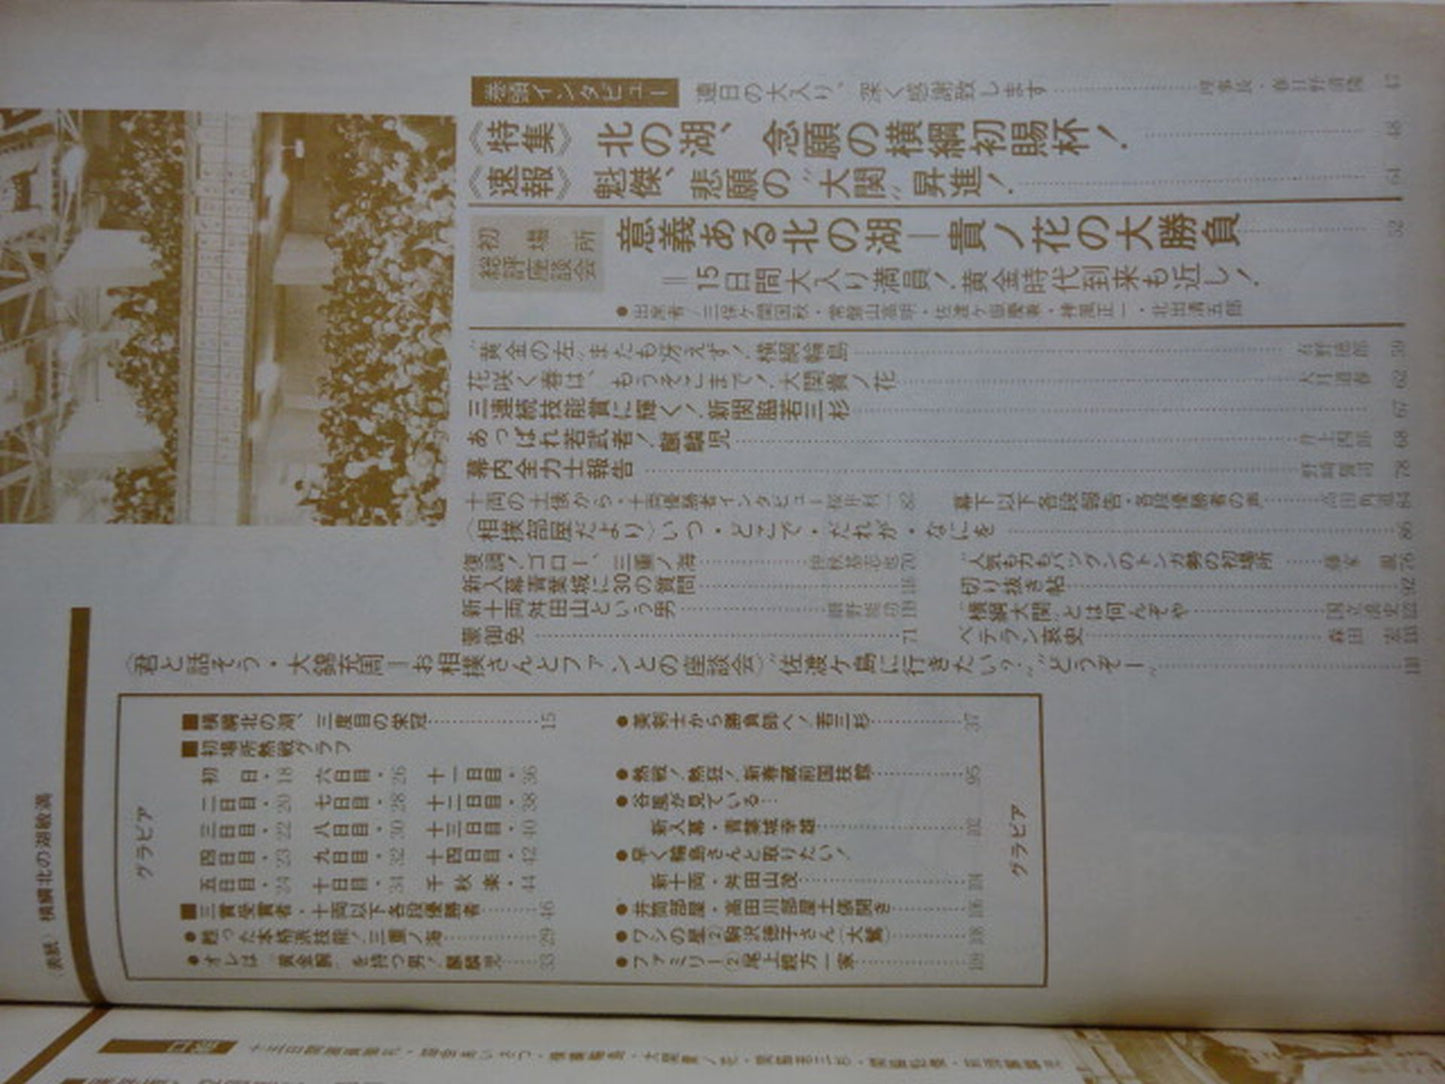 巻頭インタビュー 連日の大入り、深く感謝致します 理事長・春日野清隆 47
《特集》 北の湖、念願の横綱初賜杯! 48
《速報》 魁傑、悲願の“大関”昇進! 64
初場所総評座談会
意義ある北の湖―貴ノ花の大勝負 52
=15日間大入り満員!黄金時代到来も近し!
●出席者/三保ケ関国秋・常盤山高明・佐渡ケ嶽慶兼・神風正一・北出清五郎
“黄金の左”またも冴えず!横綱輪島 59
花咲く春は、もうそこまで!大関貴ノ花 大月道春 62
三連続技能賞に輝く!新関脇若三杉 67
あっぱれ若武者!麒麟児 井上四郎 68
幕内全力士報告 78
十両の土俵から・十両優勝者インタビュー 桜井利一 82
幕下以下各段報告・各段優勝者の声 84
〈相撲部屋だより〉いつ・どこで・だれが・なにを 86
復調!ゴロー、三重ノ海 70
“人気も力もバツグンのトンガ勢の初場所 76
新入幕青葉城に30の質問 116
切り抜き帖 92
新十両舛田山という男 118
“横綱大関”とは何んぞや
蒙御免 71
ベテラン哀史
〈君と話そう・大錦充周=お相撲さんとファンとの座談会〉“佐渡ケ島に行きたい?”“どうぞー”
グラビア
■横綱北の湖、三度目の栄冠 15
■初場所熱戦グラフ
初日・18 六日目・26 十一日目・36
二日目・20 七日目・28 十二日目・38
三日目・22 八日目・30 十三日目・40
四日目・23 九日目・32 十四日目・42
五日目・24 十日目・34 千秋楽・44
■三賞受賞者・十両以下各段優勝者 46
●甦った本格派技能!三重ノ海 29
●オレは“黄金腕”を持つ男!麒麟児 33
●美剣士から勝負師へ!若三杉 37
●熱戦!熱狂!新春蔵前国技館 95
●谷風が見ている…
新入幕・青葉城幸雄 102
●早く輪島さんと取りたい!
新十両・舛田山茂 104
●井筒部屋・高田川部屋土俵開き 106
●ワシの星(2)駒沢徳子さん(大鷲) 108
●ファミリー(2)尾上親方一家 109
グラビア
(表紙) 横綱北の湖敏満